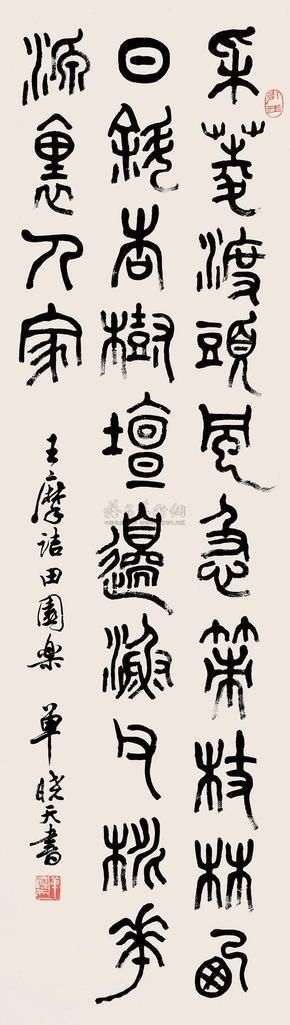 采菱渡頭風急策杖林西
日斜杏樹壇邊漁父桃華
源裏人家
王摩詰田園樂 單曉天書